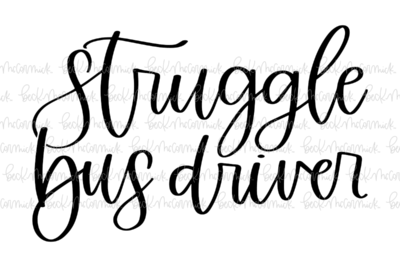 struggle
bus driver